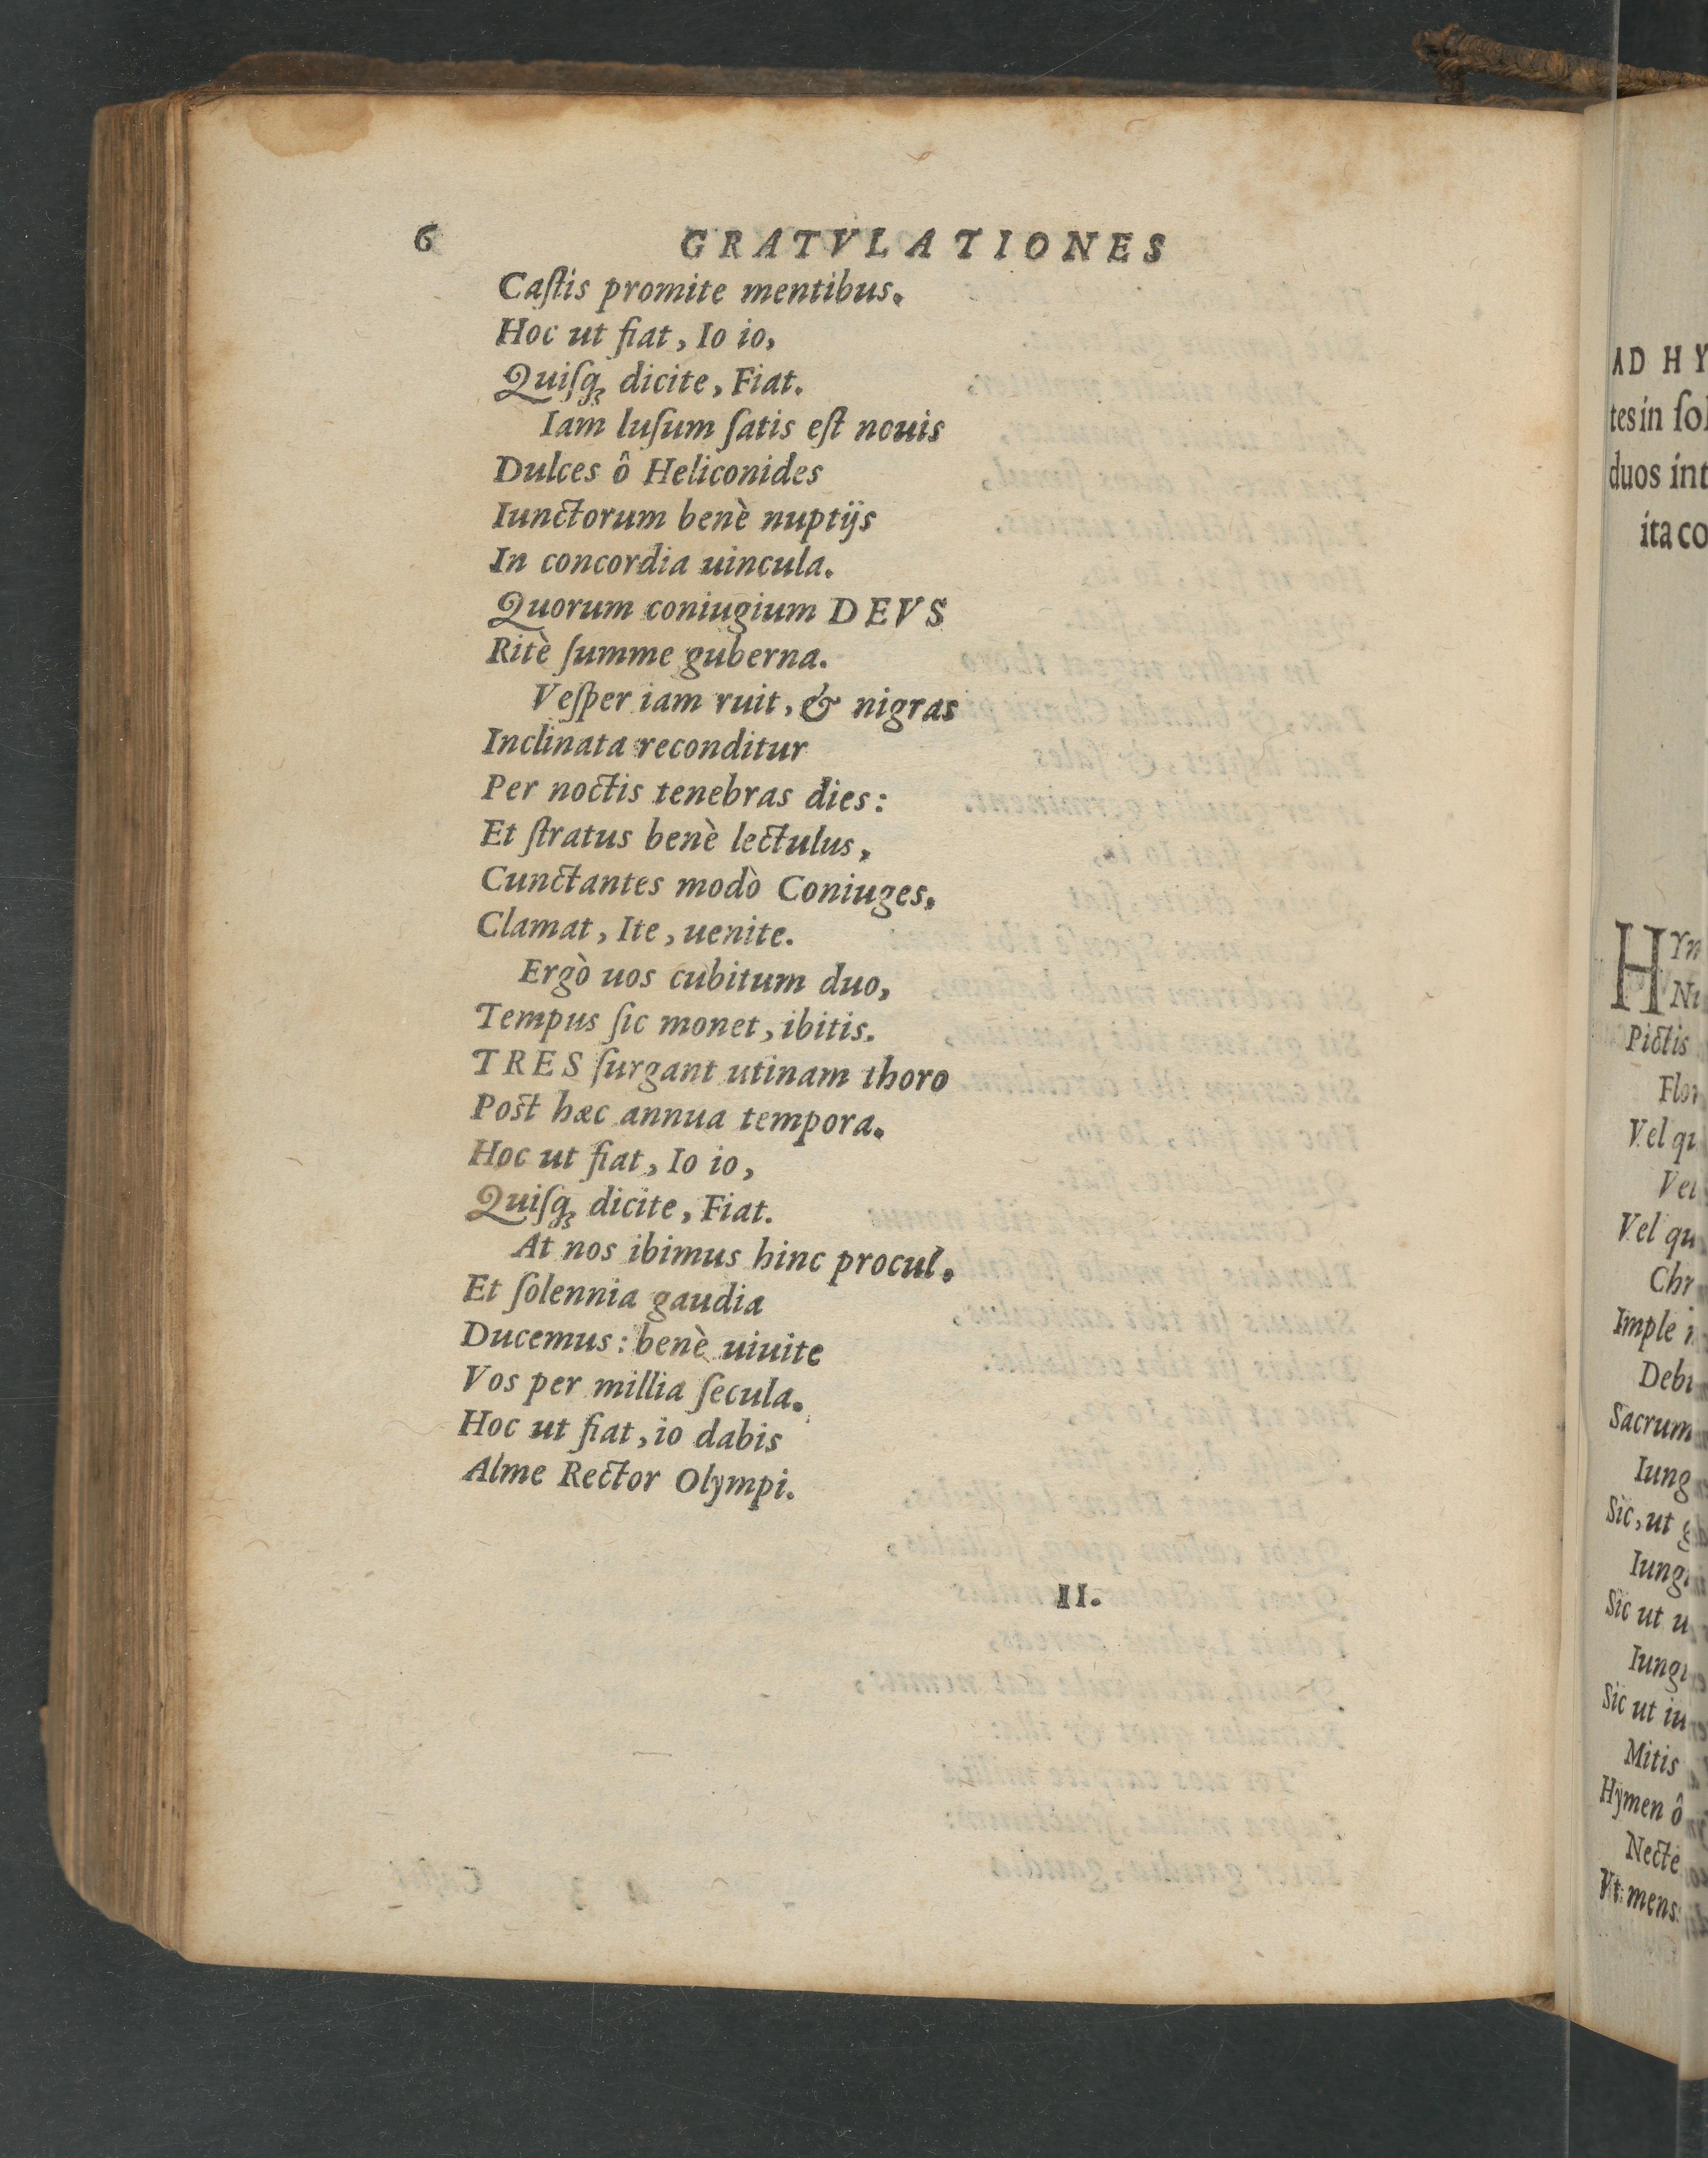 6 GRATVLATIONES
Caſtis promite mentibus.
Hoc ut fiat, Io io,
Quiſq́ꝫ dicite, Fiat.
Iam luſum ſatis eſt nouis
Dulces ô Heliconides
Iunctorum benè nuptijs
In concordia uincula.
Quorum coniugium DEVS
Ritè ſumme guberna.
Veſper iam ruit, & nigras
Inclinata reconditur
Per noctis tenebras dies:
Et ſtratus benè lectulus,
Cunctantes modò Coniuges,
Clamat, Ite, uenite.
Ergò uos cubitum duo,
Tempus ſic monet, ibitis.
TRES ſurgant utinam thoro
Post hæc annua tempora.
Hoc ut fiat, Io io,
Quiſq́ꝫ dicite, Fiat.
At nos ibimus hinc procul.
Et ſolennia gaudia
Ducemus: benè uiuite
Vos per millia ſecula.
Hoc ut fiat, io dabis
Alme Rector Olympi.
II.
AD HY
tes in ſol
duos int
ita co
HYn
Pictis
Flor
Vel qu
Vel
Vel qu
Chr
Imple
Debi
Sacrum
Iung
Sic, ut g
Iung
Sic ut u
Iung
Sic ut iu
Mitis
Hymen ô
Necte
Vt mens